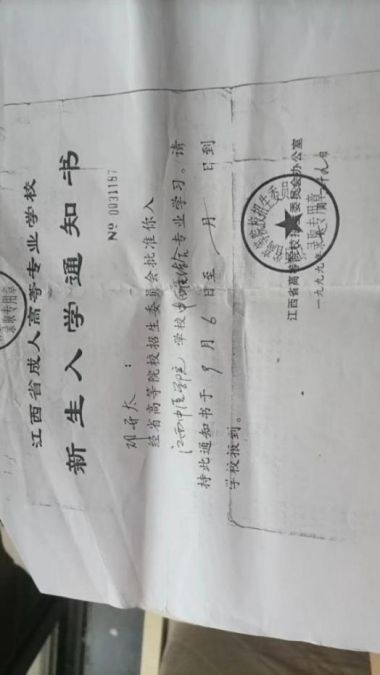 江西省成人高等专业学校
新生入学通知书
Nº 0031187
邓开太：
经省高等院校招生委员会批准你入
江西中医学院 学校 专业学习。请
持此通知书于9月6日至 月 日到
学校报到。
江西省高等学校招生委员会办公室
一九九九年
录取专用章
录取专用章